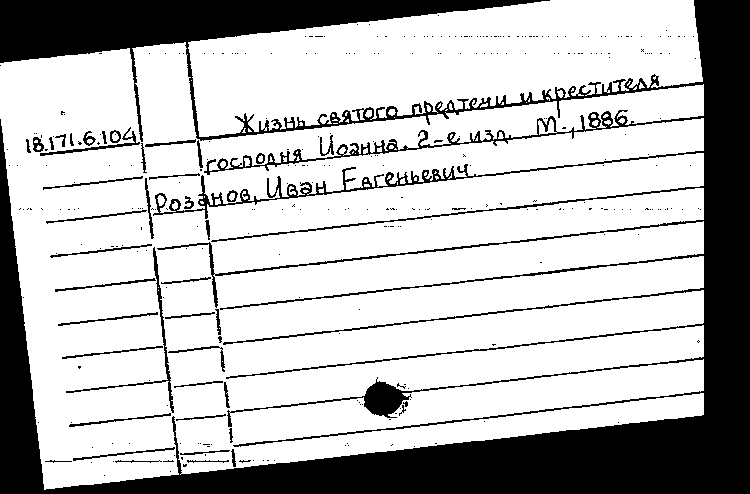 18.171.6.104
Жизнь святого предтечи и крестителя
господня Иоанна. 2-е изд. М., 1886.
Розанов, Иван Евгеньевич